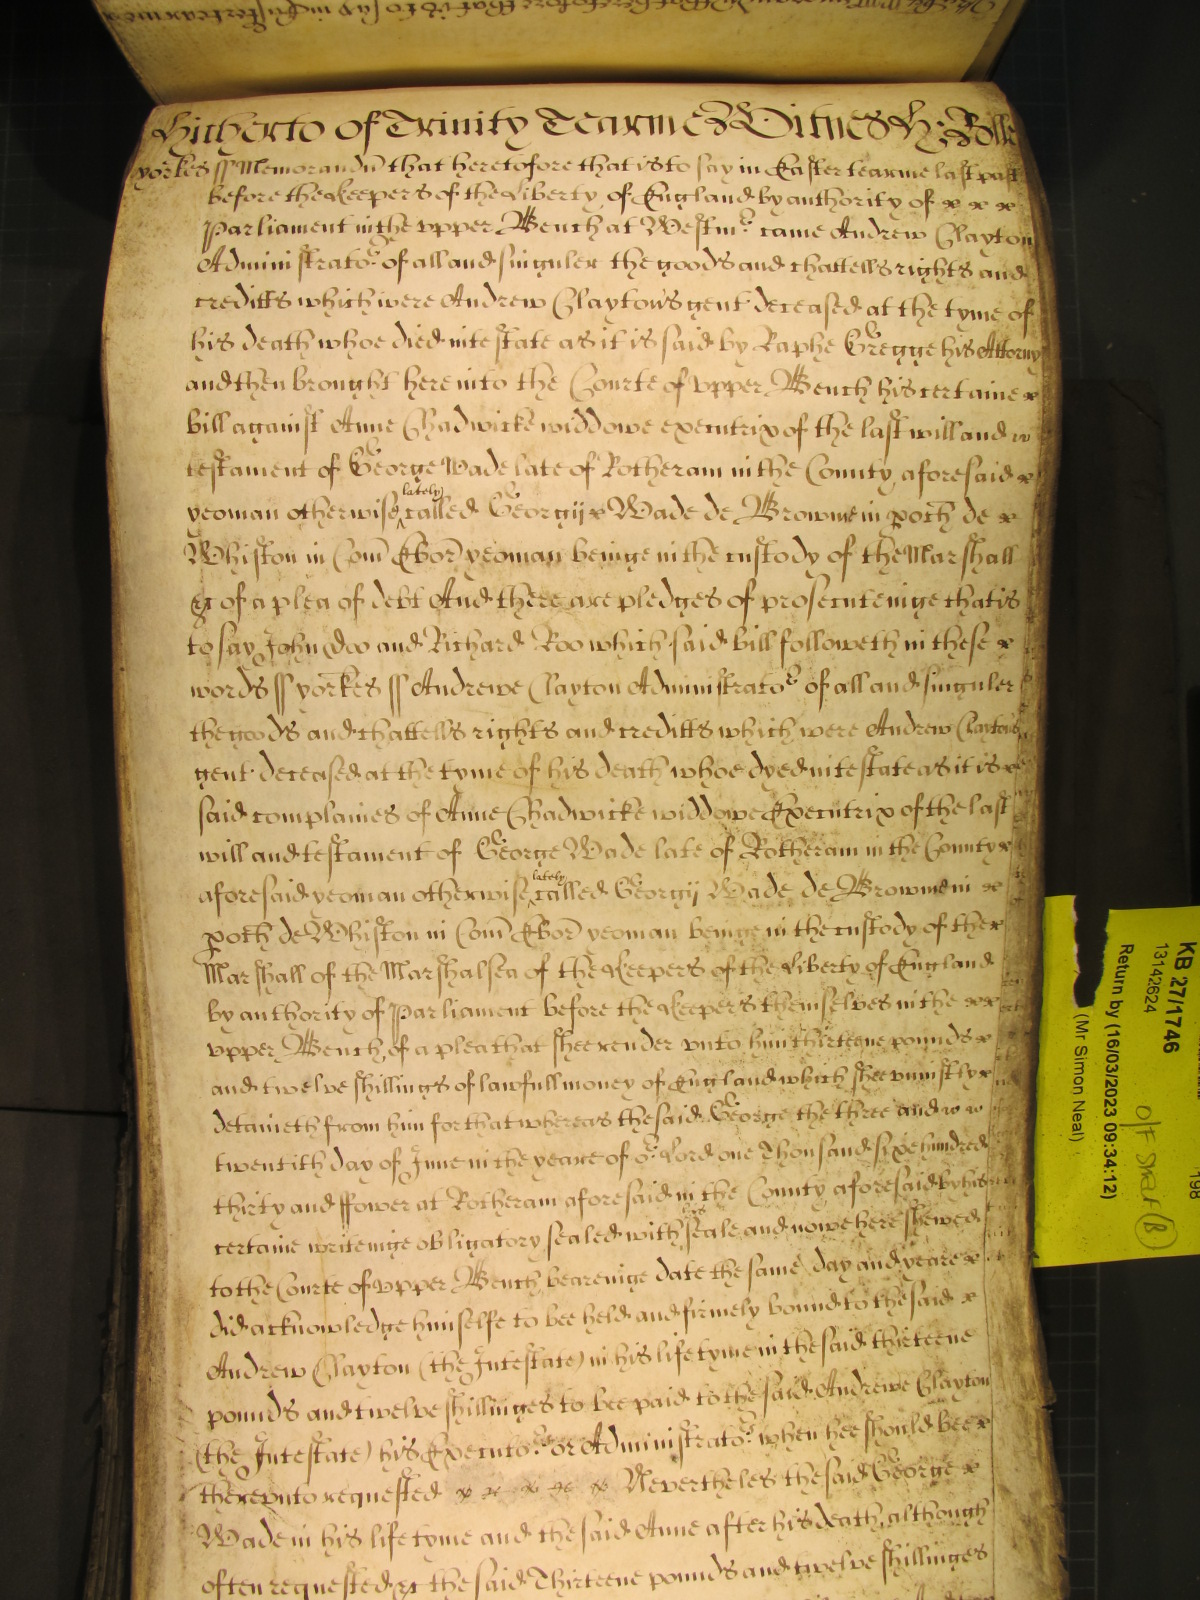 Hitherto of Trinity Tearme Witnes H: Rolle
yorkes ss Memorandũ that heretofore that is to say in Easter tearme last past
before the keepers of the Liberty of England by authority of
Parliament in the upper Bench at Westmr came Andrew Clayton
Administrator of all and singuler the goods and chattells rights and
creditts which were Andrew Claytons gent deceased at the tyme of
his death whoe died intestate as it is said by Raphe Gregge his Attorny
and then brought here into the Courte of upper Bench his certaine
bill against Anne Chadwicke widdowe executrix of the last will and
testament of George Wade late of Rotheram in the County aforesaid
yeoman otherwise lately called Georgij Wade de Browmein poch de
Whiston in Com Ebor yeoman beinge in the custody of the Marshall
&c of a plea of debt And there are pledges of prosecuteinge that is
to say John Doo and Richard Roo which said bill followeth in these
words ss yorkes ss Andrewe Clayton Administrator of all and singuler
the goods and chattells rights and creditts which were Andrew Claytons
gent deceased at the tyme of his death whoe dyed intestate as it is
said complaines of Anne Chadwicke widdowe Executrix of the last
will and testament of George Wade late of Rotheram in the County
aforesaid yeoman otherwise lately called Georgij Wade de Browmein
poch de Whiston in Com Ebor yeoman beinge in the custody of the
Marshall of the Marshalsea of the keepers of the Liberty of England
by authority of Parliament before the keepers themselves in the
upper Bench of a plea that shee render unto him thirteene pounds
and twelve shillings of lawfull money of England which shee uniustly
detaineth from him for that whereas the said George the three and
twentith day of June in the yeare of or Lord one Thousand sixe hundred
thirty and ffower at Rotheram aforesaid in the County aforesaid by his
certaine writeinge obligatory sealed with his seale and nowe here shewed
to the Courte of upper Bench beareinge date the same day and yeare
did acknowledge himselfe to bee held and firmely bound to the said
Andrew Clayton (the Intestate) in his life tyme in the said thirteene
pounds and twelve shillinges to bee paid to the said Andrewe Clayton
(the Intestate) his Executors or Administrators when hee should bee
thereunto requested Nevertheles the said George
Wade in his life tyme and the said Anne after his death although
often requested &c the said Thirteene pounds and twelve shillinges
KB 27/1746
13142624
Return by (16/03/2023 09:34:12)
(Mr Simon Neal)
198